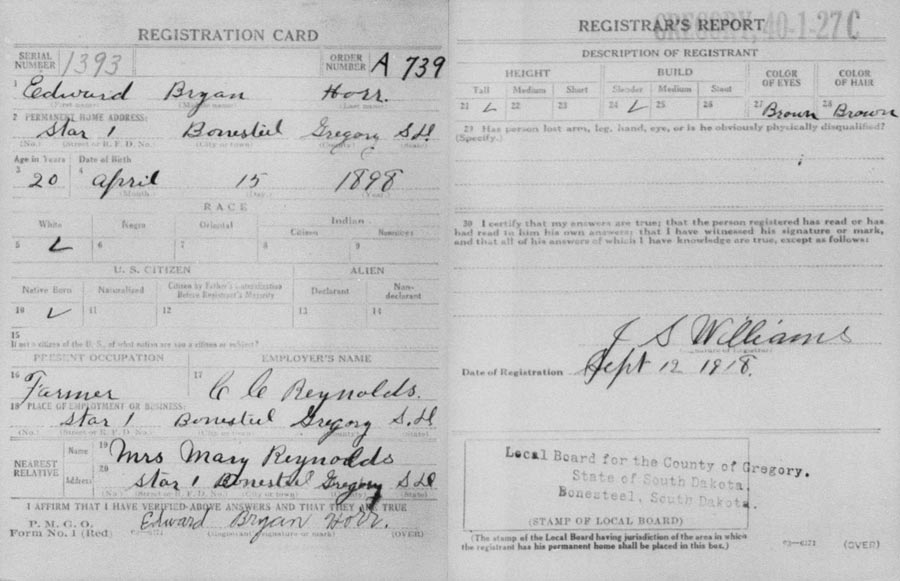 REGISTRATION CARD
SERIAL NUMBER 1393 ORDER NUMBER A 739
1 Edward Bryan Horr.
(First name) (Middle name) (Last name)
2 PERMANENT HOME ADDRESS:
Star 1 Bonesteel Gregory S.D.
(No.) (Street or R. F. D. No.) (City or town) (County) (State)
Age in Years Date of Birth
3 20 4 April 15 1898
(Month) (Day) (Year)
RACE
White Negro Oriental Indian
Citizen Noncitizen
5 6 7 8 9
U. S. CITIZEN ALIEN
Native Born Naturalized Citizen by Father's Naturalization Before Registrant's Majority Declarant Non-declarant
10 11 12 13 14
15
If not a citizen of the U. S., of what nation are you a citizen or subject?
PRESENT OCCUPATION EMPLOYER'S NAME
16 Farmer 17 C C Reynolds.
18 PLACE OF EMPLOYMENT OR BUSINESS:
Star 1 Bonesteel Gregory S.D.
(No.) (Street or R. F. D. No.) (City or town) (County) (State)
NEAREST RELATIVE
Name 19 Mrs Mary Reynolds
Address 20 Star 1 Bonesteel Gregory S.D.
(No.) (Street or R. F. D. No.) (City or town) (County) (State)
I AFFIRM THAT I HAVE VERIFIED ABOVE ANSWERS AND THAT THEY ARE TRUE
P. M. G. O.
Form No. 1 (Red) Edward Bryan Horr.
(Registrant's signature or mark) (OVER)
REGISTRAR'S REPORT
GREGORY, 40-1-27 C
DESCRIPTION OF REGISTRANT
HEIGHT BUILD COLOR OF EYES COLOR OF HAIR
Tall Medium Short Slender Medium Stout
21 22 23 24 25 26 27 Brown 28 Brown
29 Has person lost arm, leg, hand, eye, or is he obviously physically disqualified?
(Specify.)
30 I certify that my answers are true; that the person registered has read or has
had read to him his own answers; that I have witnessed his signature or mark,
and that all of his answers of which I have knowledge are true, except as follows:
J S Williams
(Signature of Registrar)
Date of Registration Sept 12 1918.
Local Board for the County of Gregory.
State of South Dakota.
Bonesteel, South Dakota.
(STAMP OF LOCAL BOARD)
(The stamp of the Local Board having jurisdiction of the area in which
the registrant has his permanent home shall be placed in this box.)
03—6171 (OVER)